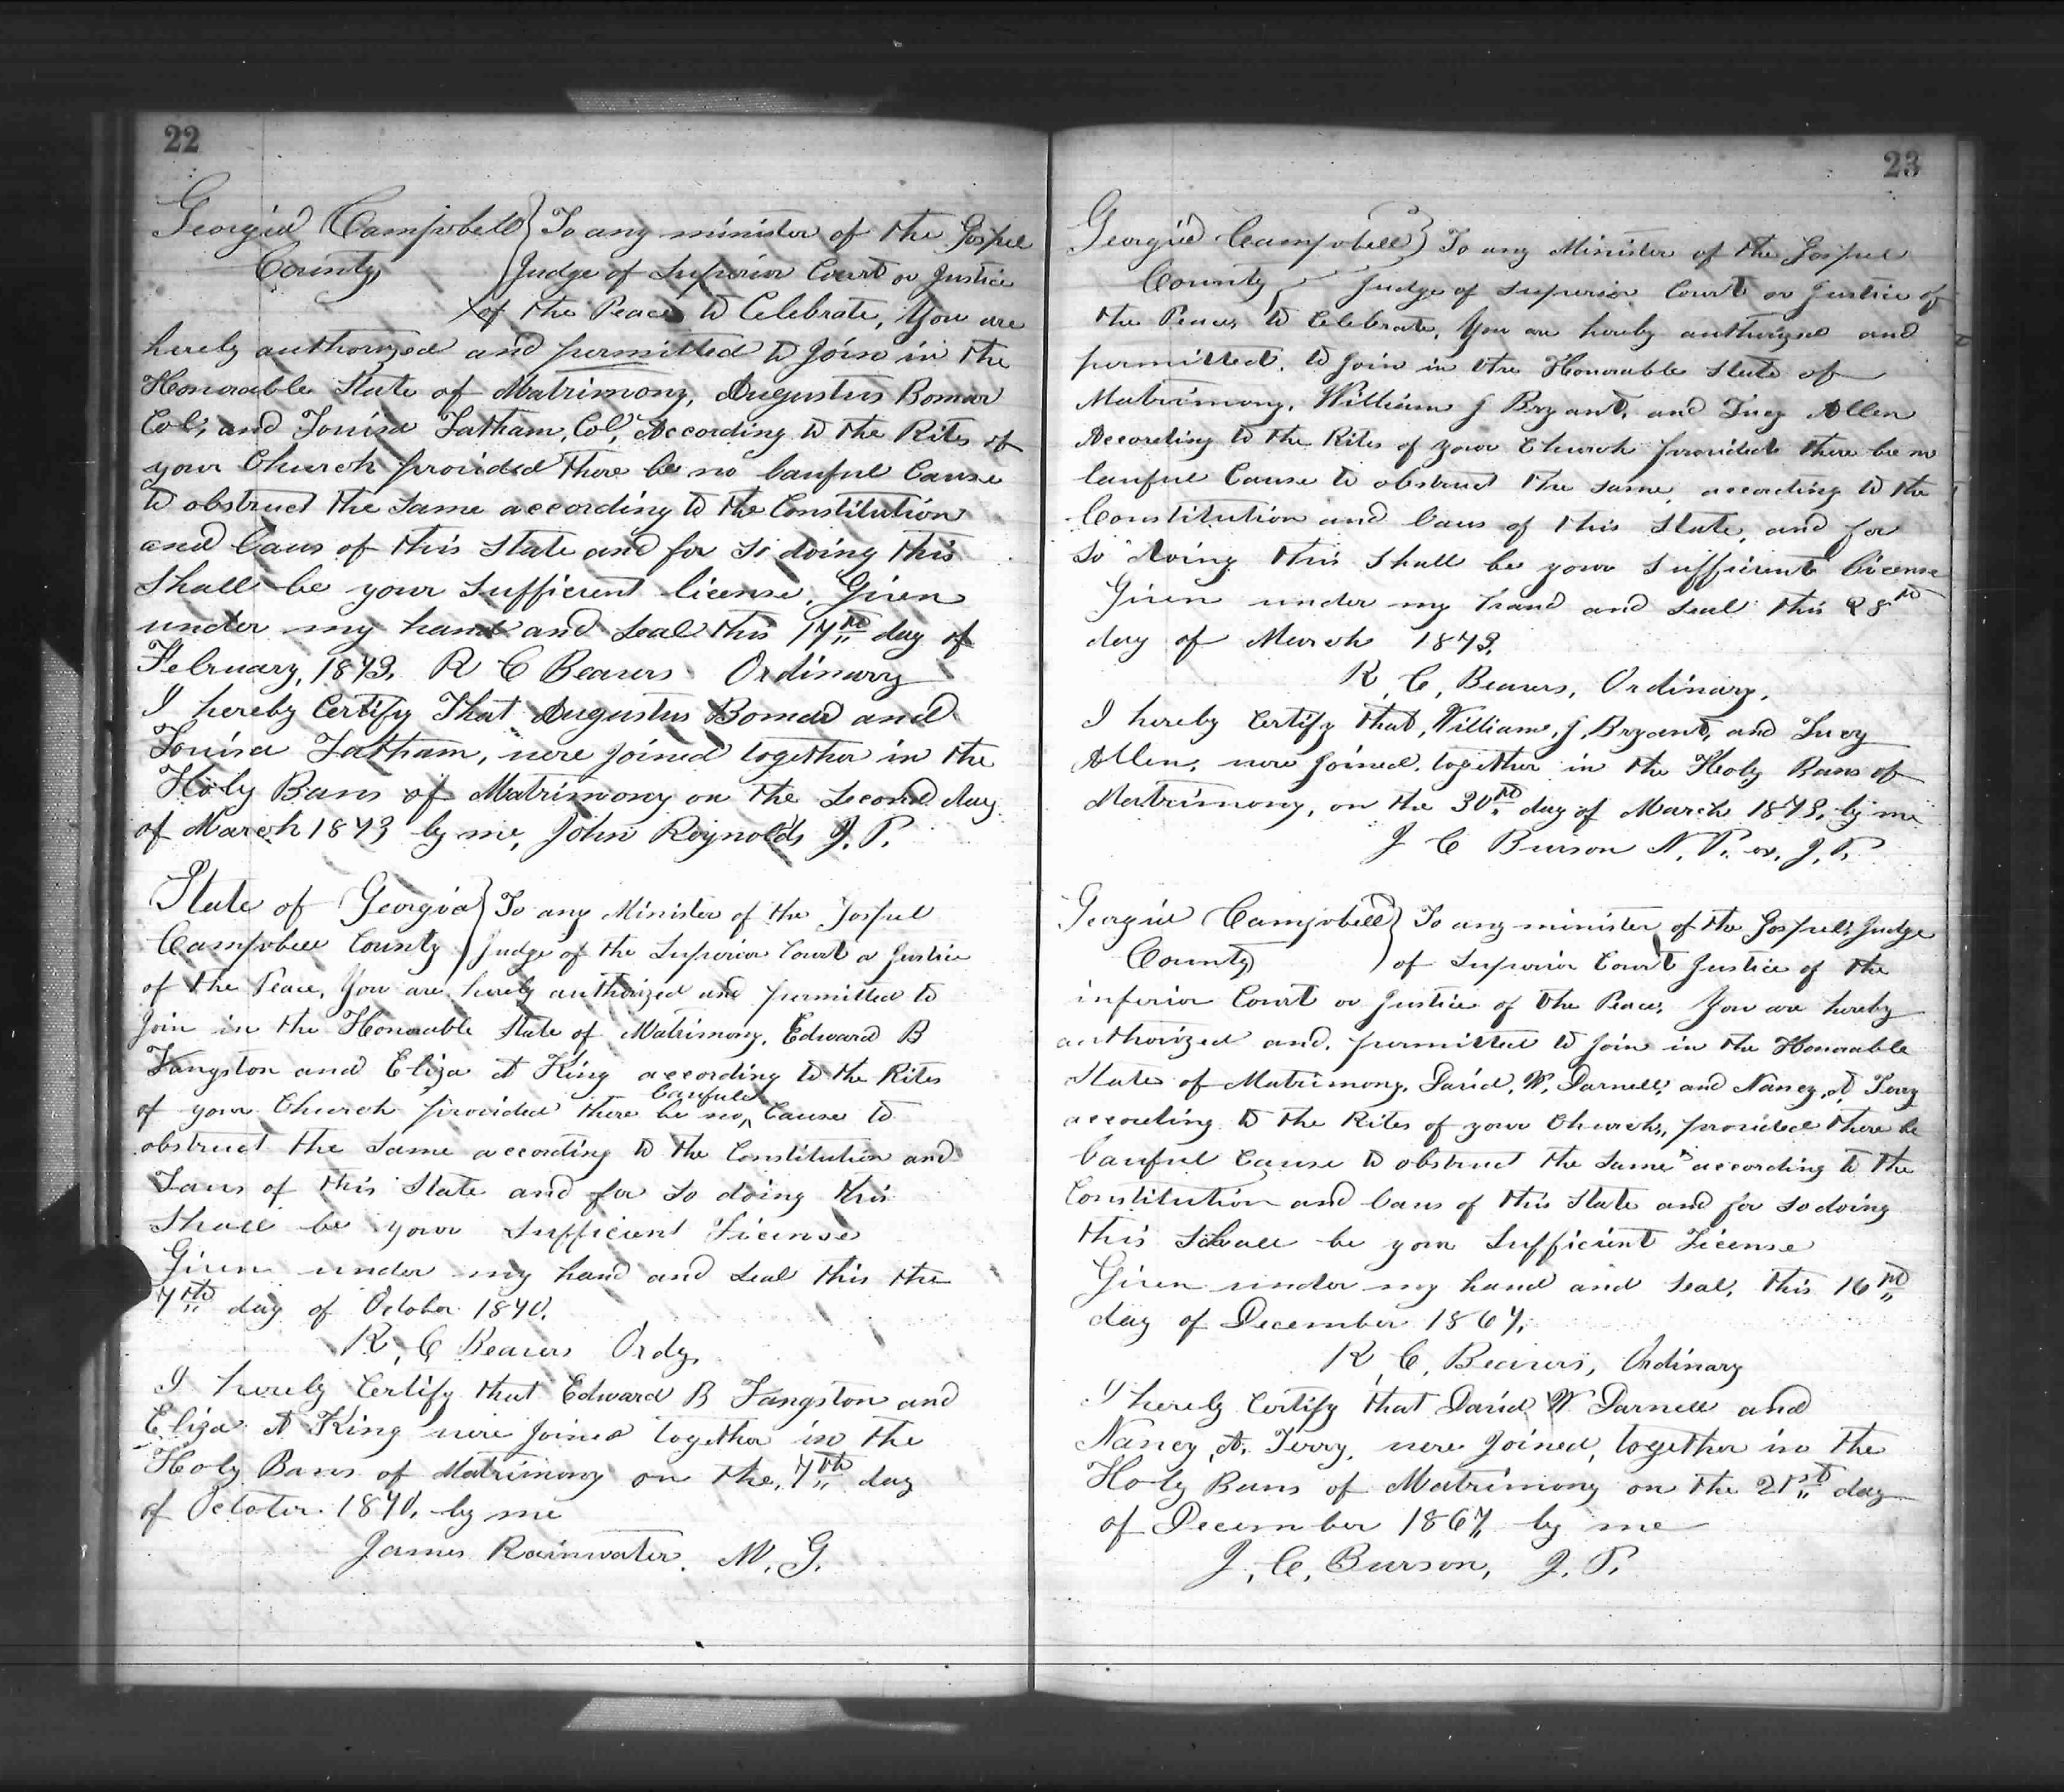 22
Georgia Campbell } To any minister of the Gospel
County } Judge of Superior Court or Justice
of the Peace to Celebrate, You are
hereby authorized and permitted to Join in the
Honorable State of Matrimony, Augustus Bomar
Col; and Louisa Latham, Col; According to the Rites of
your Church provided there be no lawful Cause
to obstruct the Same according to the Constitution
and laws of this State and for So doing this
Shall be your Sufficient license, Given
under my hand and Seal this 17th day of
February, 1873. R C Beavers Ordinary
I hereby Certify That Augustus Bomar and
Louisa Latham, were Joined together in the
Holy Bans of Matrimony on the Second day
of March 1873 by me, John Reynolds J. P.
State of Georgia } To any Minister of the Gospel
Campbell County } Judge of the Superior Court or Justice
of the Peace, You are hereby authorized and permitted to
Join in the Honorable State of Matrimony, Edward B
Langston and Eliza A King according to the Rites
of your Church provided there be no lawful Cause to
obstruct the Same according to the Constitution and
Laws of this State and for So doing this
Shall be your Sufficient License
Given under my hand and Seal this the
7th day of October 1870.
R, C, Beavers Ordy,
I hereby Certify that Edward B Langston and
Eliza A King were Joined together in the
Holy Bans of Matrimony on the, 7th day
of October 1870, by me
James Rainwater. M. G.
23
Georgia Campbell } To any Minister of the Gospel
County } Judge of Superior Court or Justice of
the Peace, to Celebrate, You are hereby authorized and
permitted, to Join in the Honorable State of
Matrimony, William J Bryant, and Lucy Allen
According to the Rites of your Church provided there be no
lawful Cause to obstruct the Same, according to the
Constitution and laws of this State, and for
So doing this Shall be your Sufficient license
Given under my hand and Seal this 28th
day of March 1873.
R, C, Beavers, Ordinary,
I hereby Certify that, William, J, Bryant, and Lucy
Allen, were Joined, together in the Holy Bans of
Matrimony, on the 30th day of March 1873, by me
J C Burson N. P. ex. J. P.
Georgia Campbell } To any minister of the Gospel, Judge
County } of Superior Court Justice of the
inferior Court or Justice of the Peace, You are hereby
authorized and, permitted to Join in the Honorable
State of Matrimony, David, W, Darnell, and Nancy, A Terry
according to the Rites of your Church, provided there be
lawful Cause to obstruct the Same according to the
Constitution and laws of this State and for So doing
this Shall be your Sufficient License
Given under my hand and Seal, this 16th
day of December 1867,
R, C, Beavers, Ordinary
I hereby Certify that David W Darnell and
Nancy, A, Terry, were Joined, together in the
Holy Bans of Matrimony on the 21st day
of December 1867 by me
J, C, Burson, J. P.